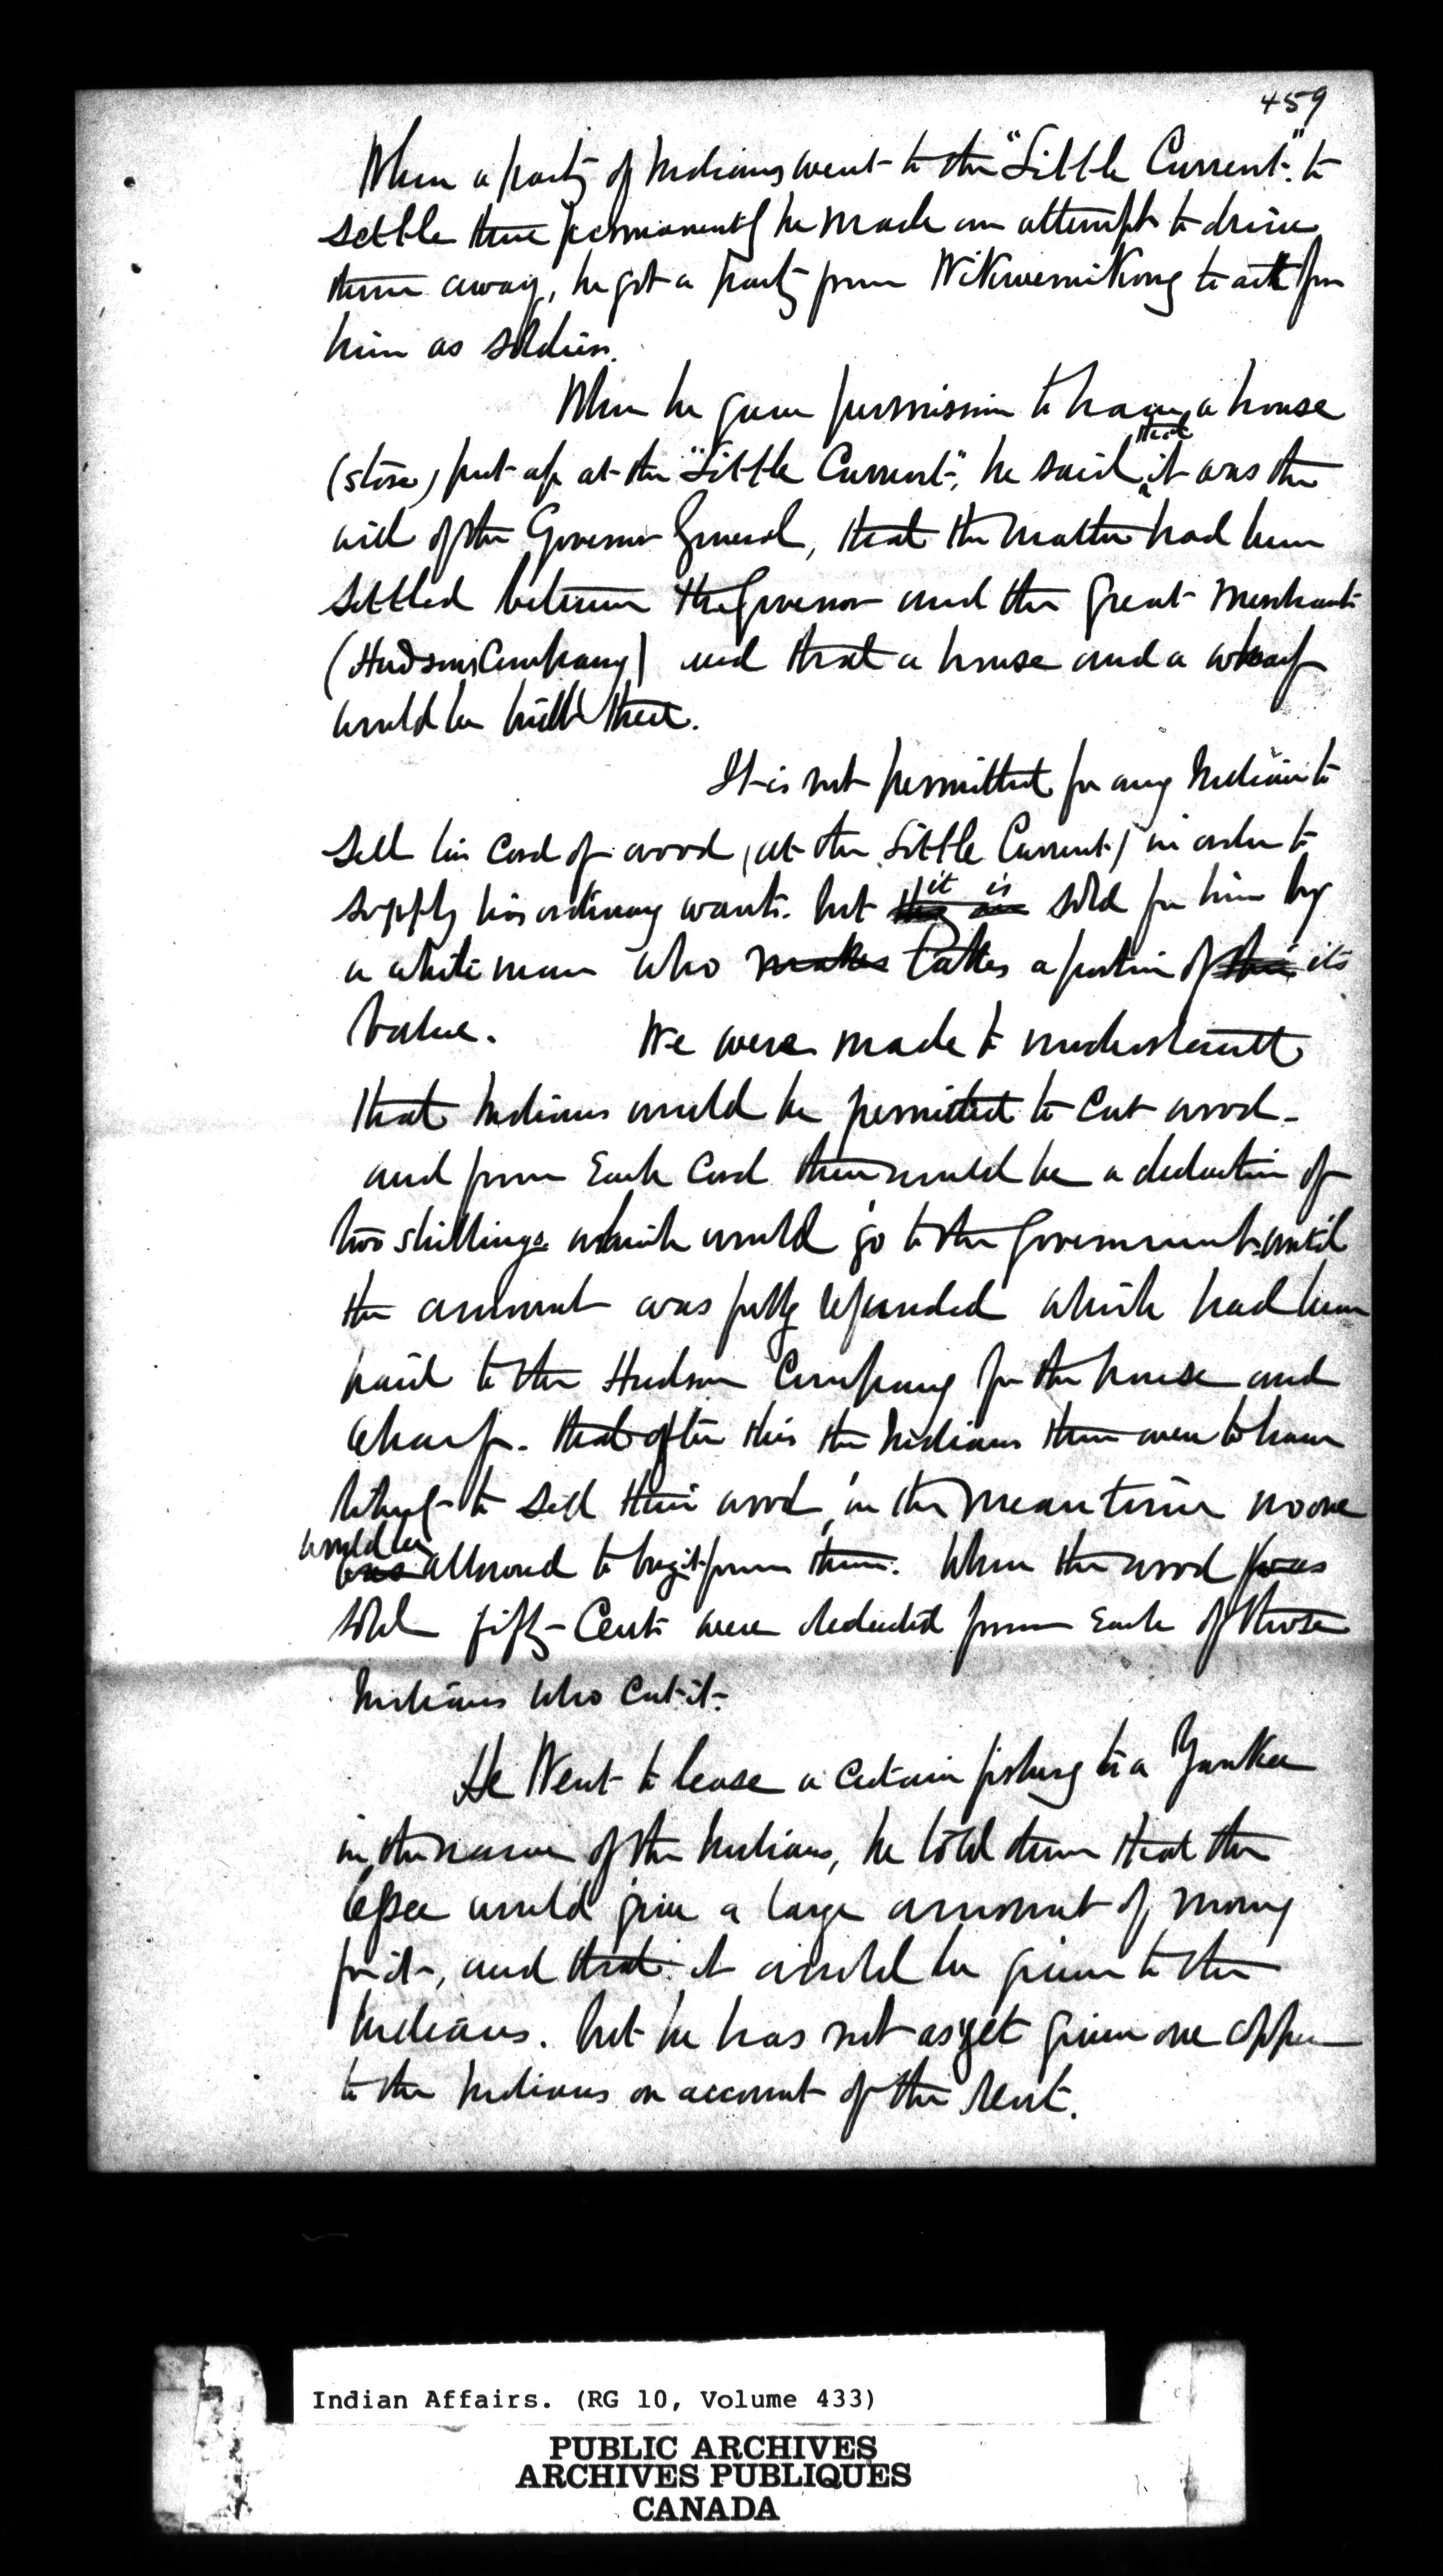 459
When a party of Indians went to the "Little Current". to
settle there permanently he made an attempt to drive
them away, he got a party from Wikwemikong to act for
him as soldiers.
When he gave permission to have a house
(store) put up at the "Little Current", he said that it was the
will of the Governor General, that the matter had been
settled between the Governor and the great Merchants
(Hudsons Company) and that a house and a wharf
would be built there.
It is not permitted for any Indian to
sell his cord of wood, (at the Little Current) in order to
supply his ordinary wants. but it is sold for him by
a white man who makes takes a portion of its
value. We were made to understand
that Indians would be permitted to cut wood -
and from Each Cord there would be a deduction of
two shillings which would go to the Government until
the amount was fully refunded which had been
paid to the Hudson Company for the house and
wharf. that after this the Indians there were to have
liberty to sell their wood, in the mean time no one
would be was allowed to buy it from them. When the wood was
sold fifty Cents were deducted from Each of those
Indians who cut it -
He Went to lease a certain fishing to a Yankee
in the name of the Indians, he told them that the
lessee would give a large amount of money
for it, and that it would be given to the
Indians. but he has not as yet given one copper
to the Indians on account of the rent.
Indian Affairs. (RG 10, Volume 433)
PUBLIC ARCHIVES
ARCHIVES PUBLIQUES
CANADA